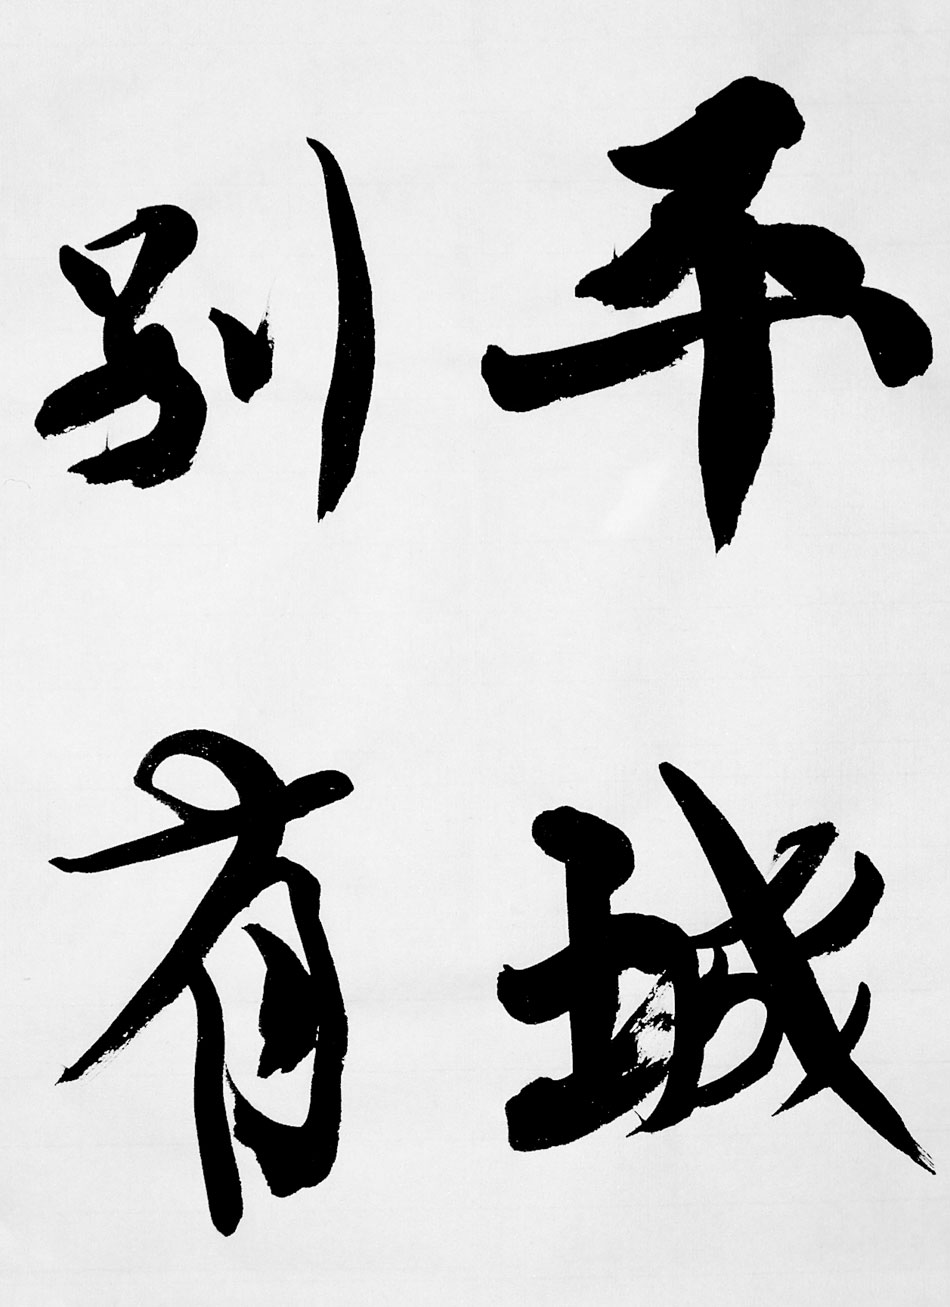 平城
别有